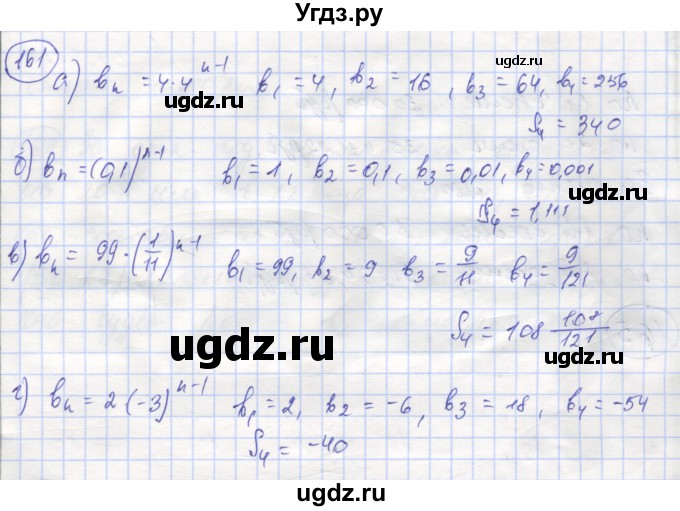 Угдз.ру
161
а) bₙ = 4·4ⁿ⁻¹ b₁ = 4, b₂ = 16, b₃ = 64, b₄ = 256
ugdz.ru
ugdz.ru
S₄ = 340
б) bₙ = (0,1)ⁿ⁻¹ b₁ = 1, b₂ = 0,1, b₃ = 0,01, b₄ = 0,001
ugdz.ru
S₄ = 1,111
в) bₙ = 99·(1/11)ⁿ⁻¹ b₁ = 99, b₂ = 9 b₃ = 9/11 b₄ = 9/121
ugdz.ru
S₄ = 108 108/121
ugdz.ru
г) bₙ = 2(-3)ⁿ⁻¹ b₁ = 2, b₂ = -6, b₃ = 18, b₄ = -54
S₄ = -40
ugdz.ru
ugdz.ru